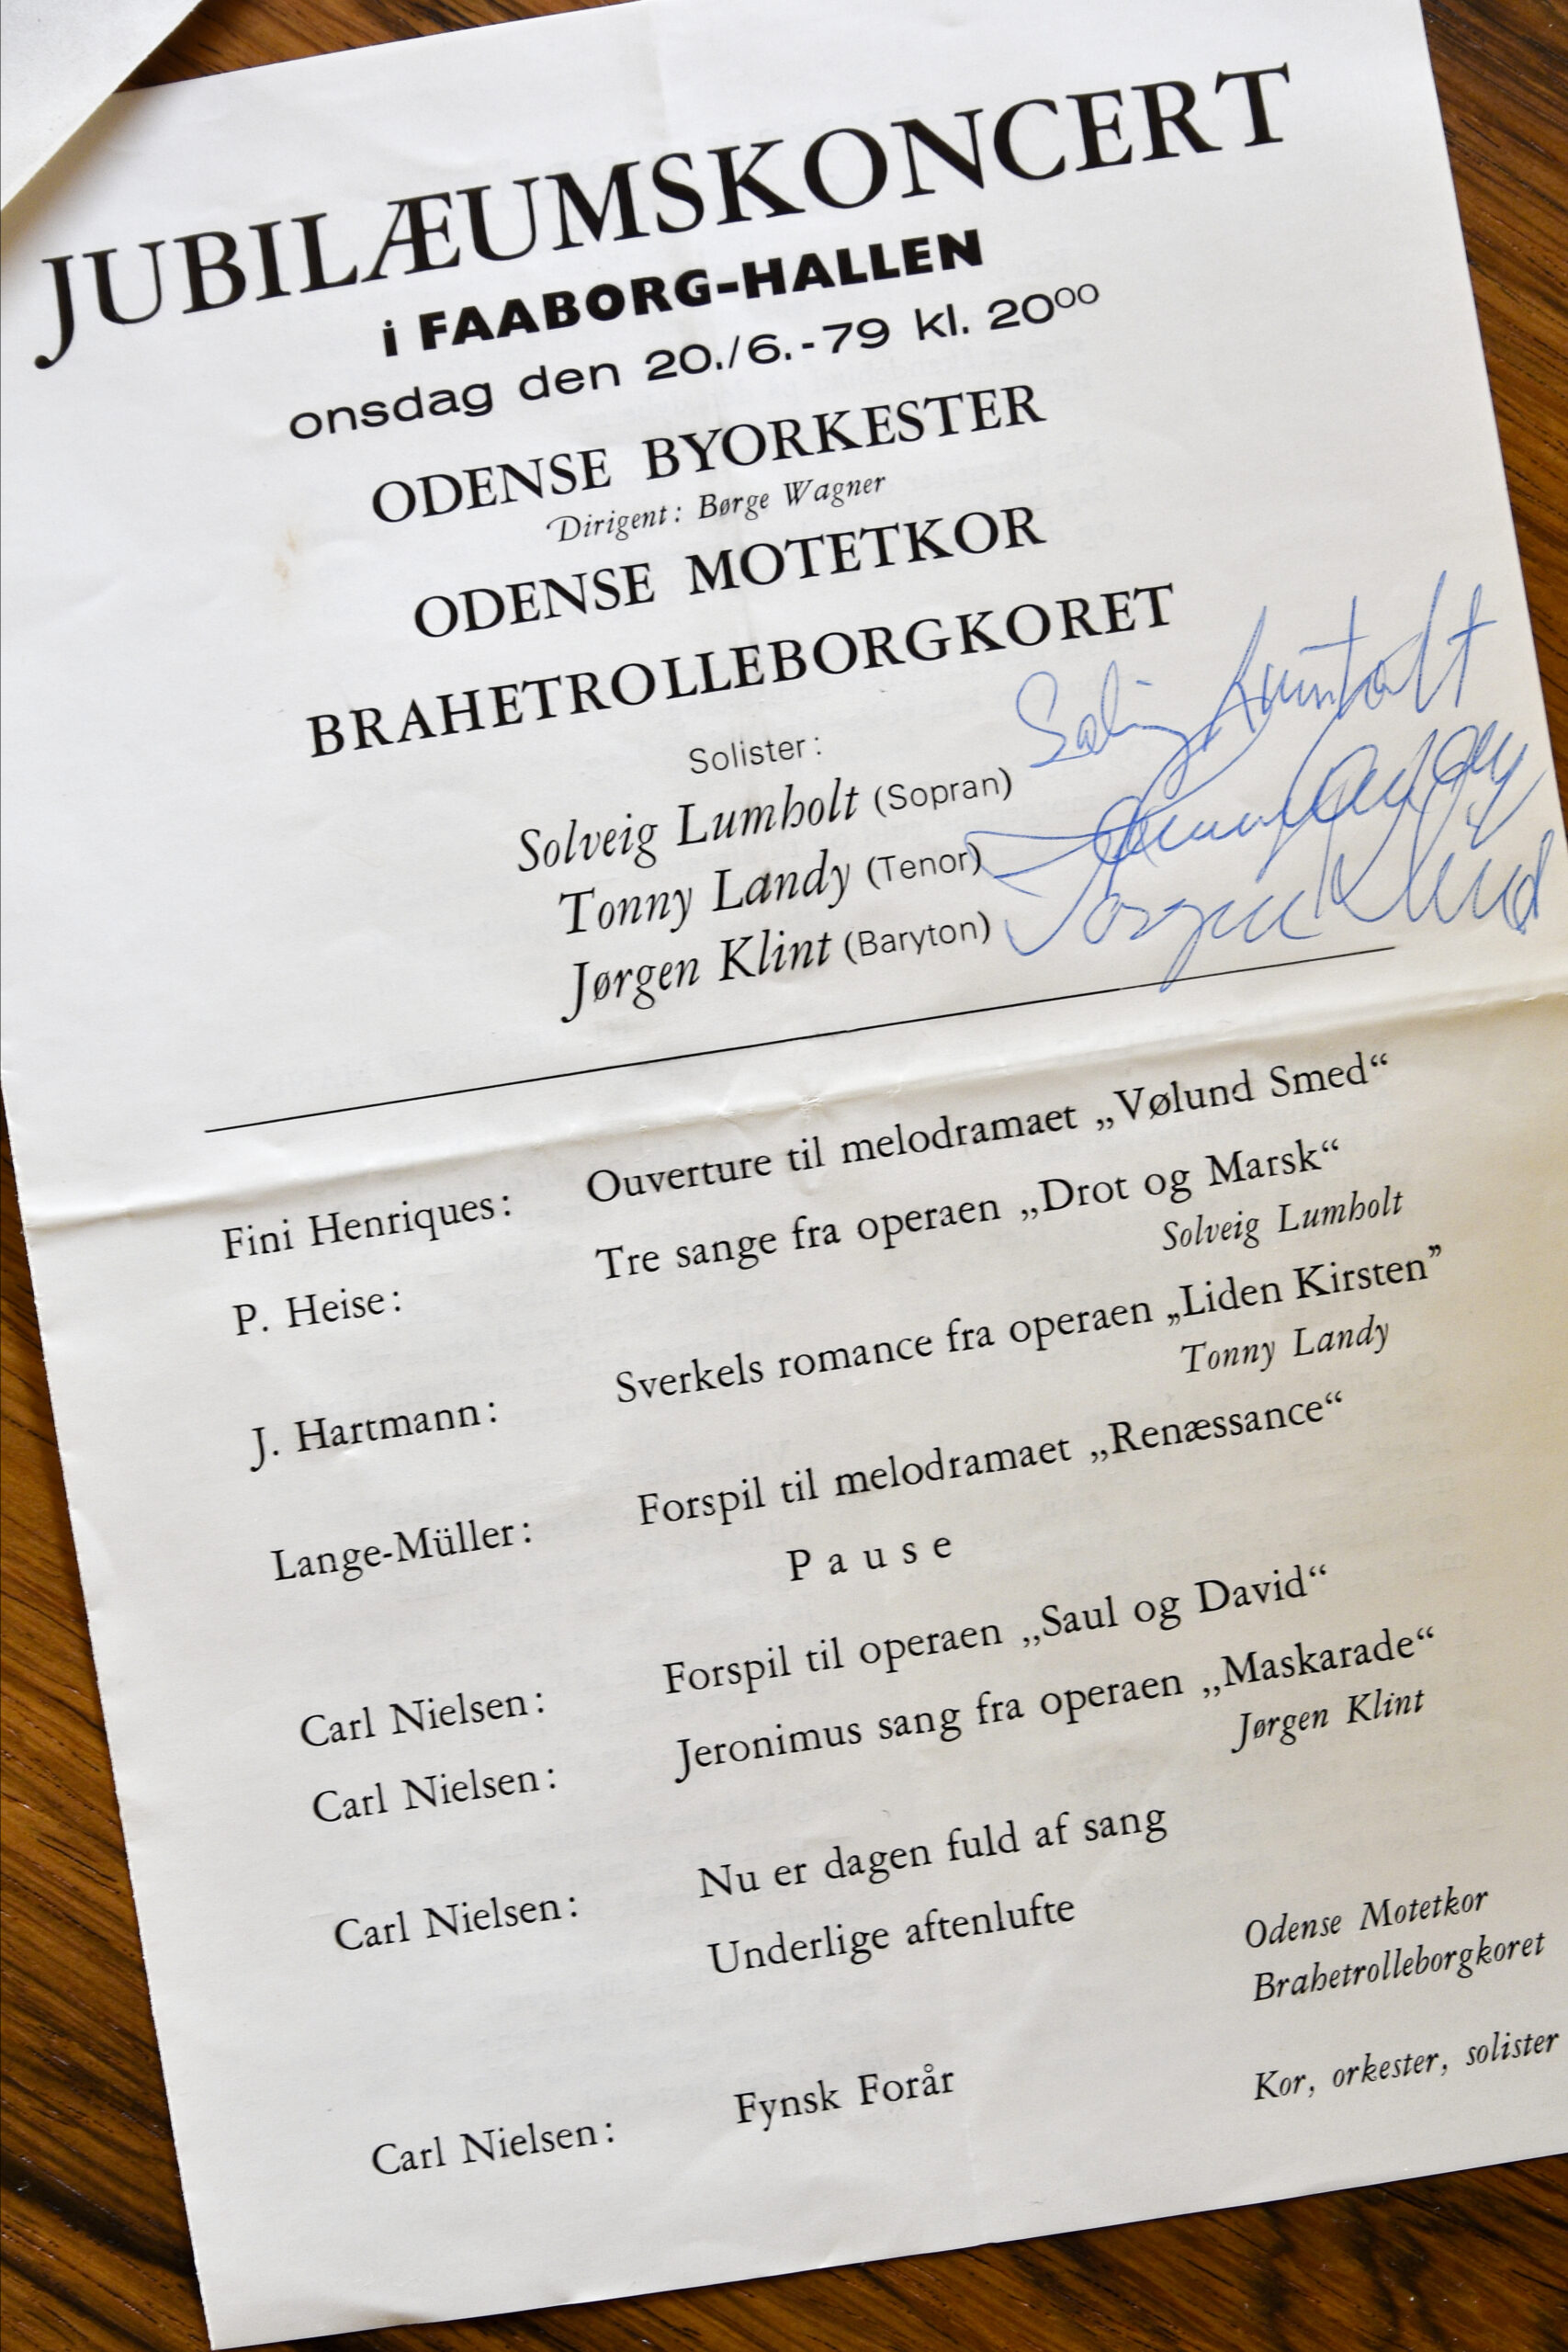 JUBILÆUMSKONCERT
i FAABORG-HALLEN
onsdag den 20./6.-79 kl. 20⁰⁰
ODENSE BYORKESTER
Dirigent: Børge Wagner
ODENSE MOTETKOR
BRAHETROLLEBORGKORET
Solister:
Solveig Lumholt (Sopran) Solveig Lumholt
Tonny Landy (Tenor) Tonny Landy
Jørgen Klint (Baryton) Jørgen Klint
Fini Henriques: Ouverture til melodramaet „Vølund Smed“
P. Heise: Tre sange fra operaen „Drot og Marsk“
Solveig Lumholt
J. Hartmann: Sverkels romance fra operaen „Liden Kirsten”
Tonny Landy
Lange-Müller: Forspil til melodramaet „Renæssance“
Pause
Carl Nielsen: Forspil til operaen „Saul og David“
Carl Nielsen: Jeronimus sang fra operaen „Maskarade“
Jørgen Klint
Carl Nielsen: Nu er dagen fuld af sang
Underlige aftenlufte
Odense Motetkor
Brahetrolleborgkoret
Carl Nielsen: Fynsk Forår
Kor, orkester, solister